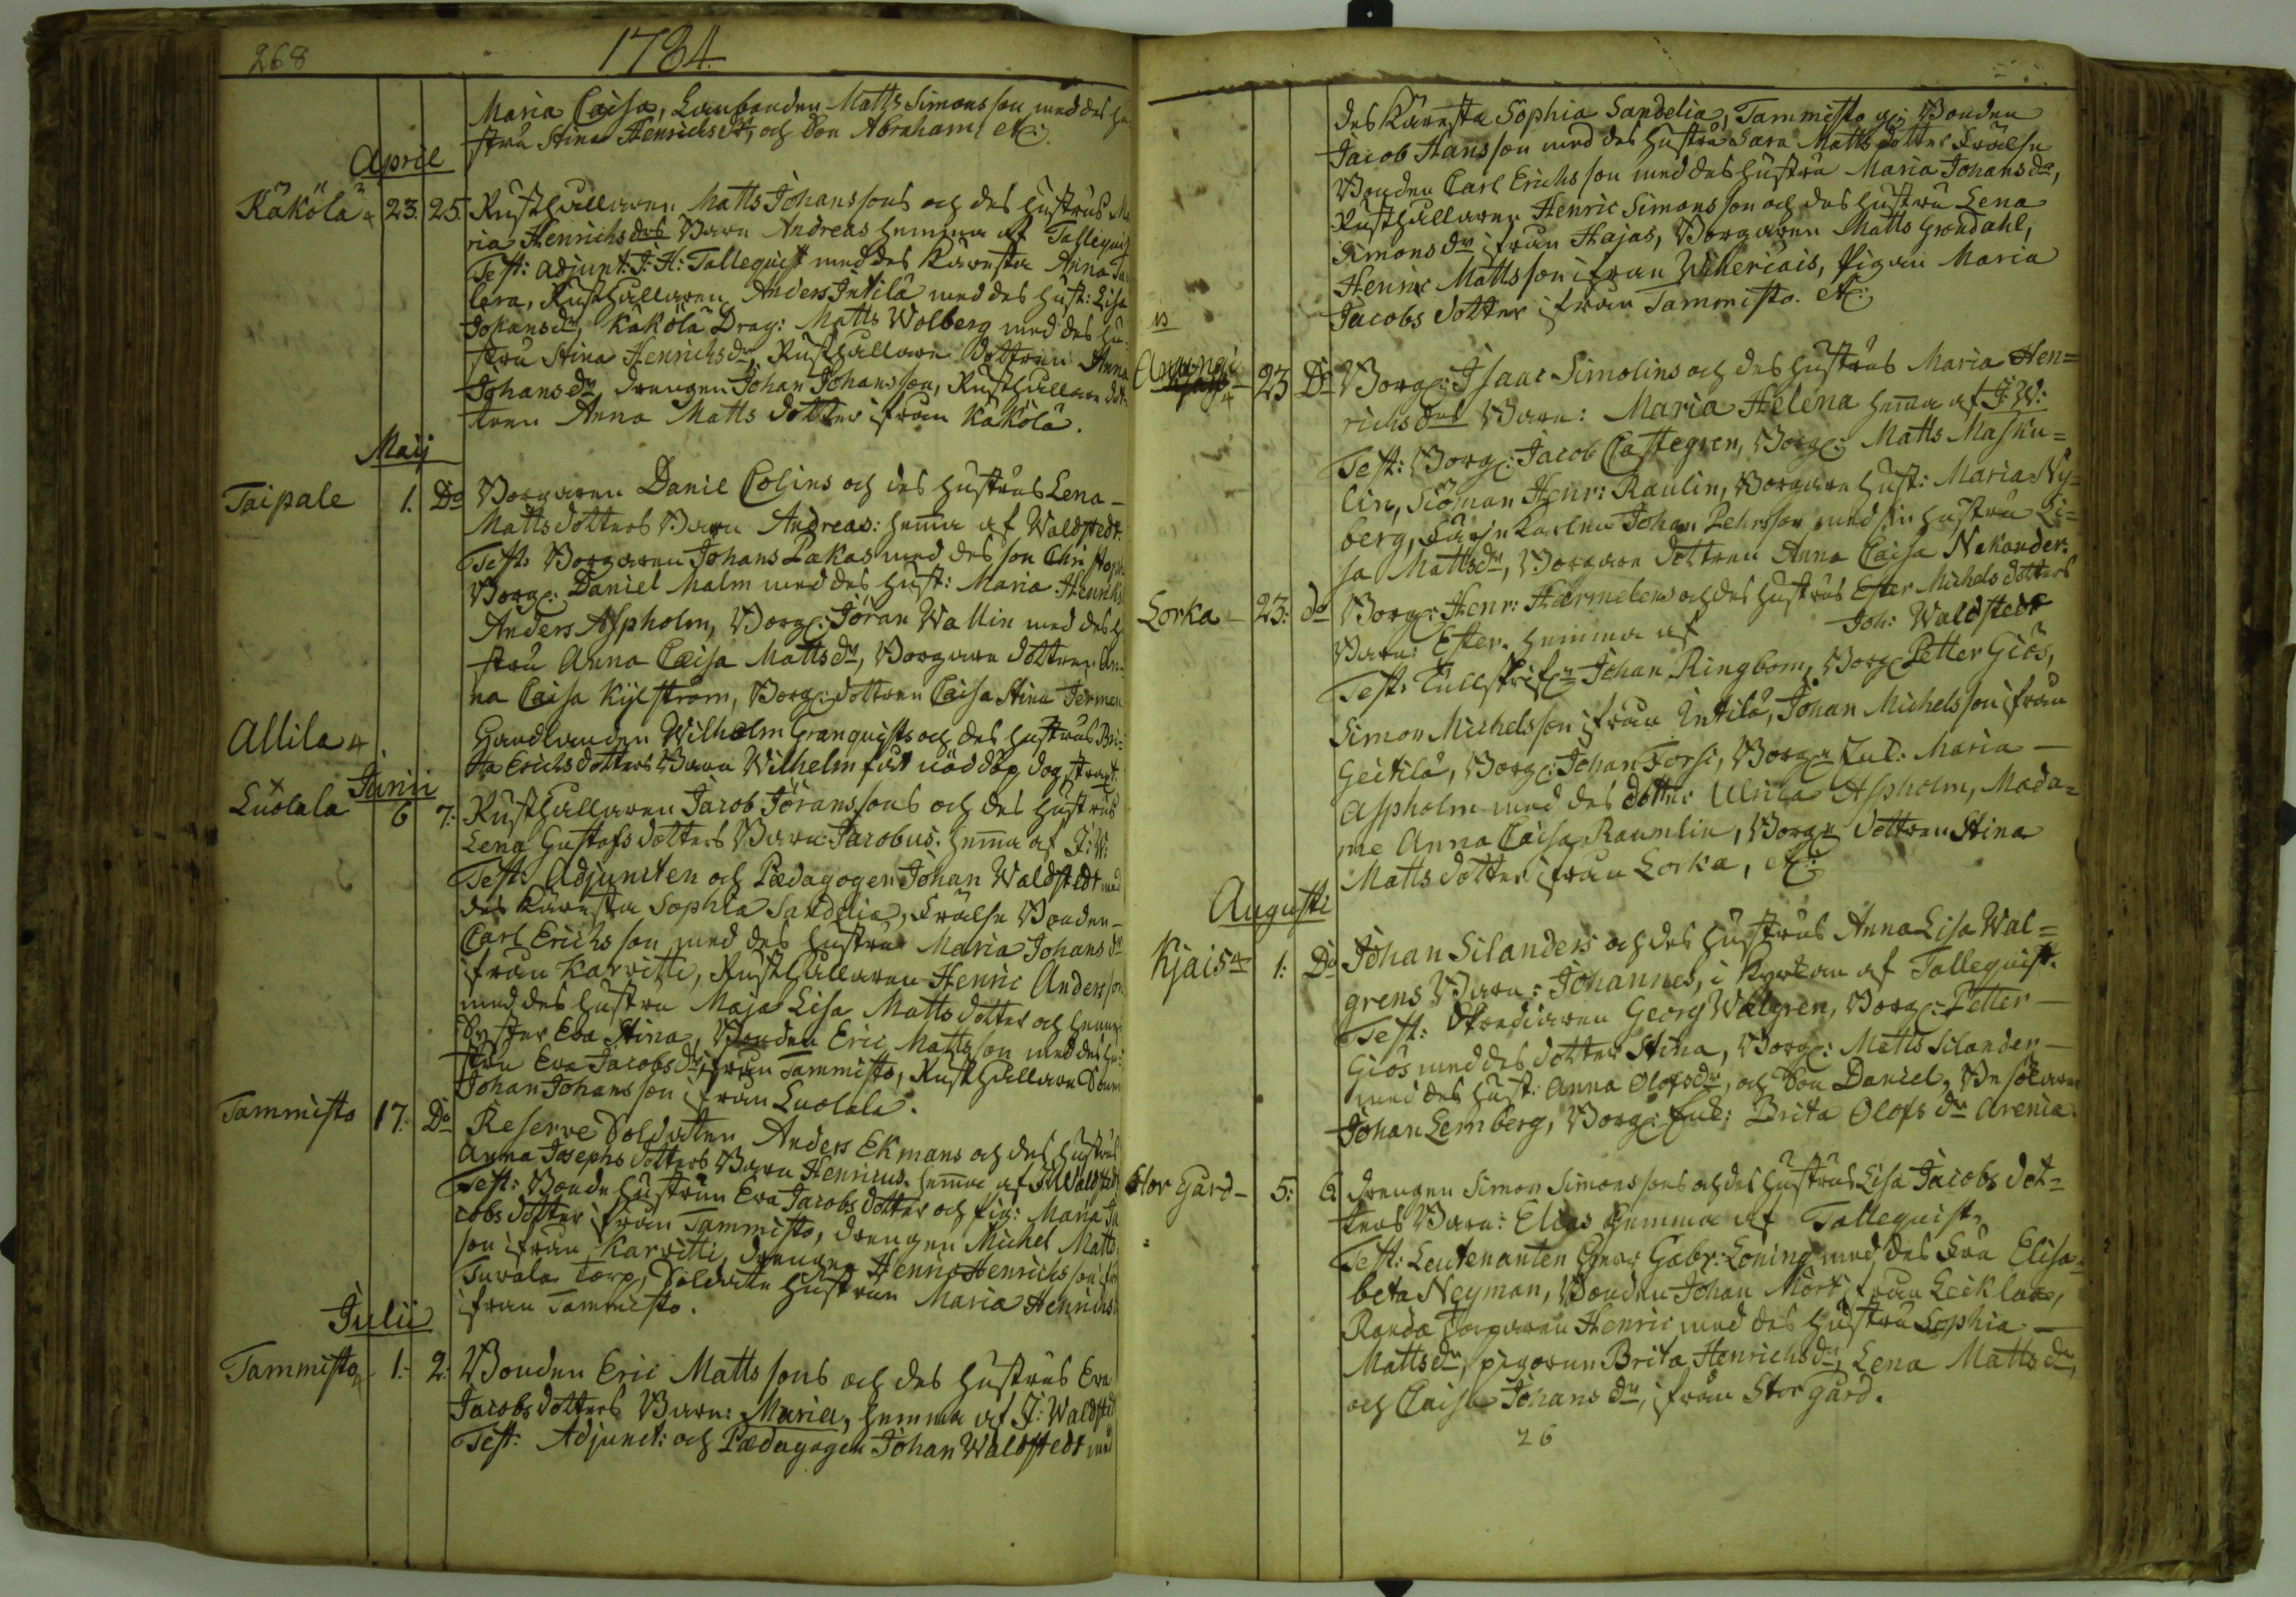 268
1784
Maria Caisa, Landbonden Matts Simonsson med des hu
stru Stina Henrichsdr, och Son Abraham etc:
April
Käkölä 23. 25. Rusthållaren Matts Johanssons och des hustrus Ma
ria Henrichsdrs Barn Andreas hemma af Tallequist
Test: Adjunt: J: H: Tallequist med des Käresta Anna
lera, Rusthållaren Anders Intilä med des hust: Lisa
Johansdr, Käkölä Drag: Matts Wolberg med des hu
stru Stina Henrichsdr, Rusthållare Dottren Anna
Johansdr, drengen Johan Johansson, Rusthållare dot
tren Anna Matts dotter ifrån Käkölä.
Maij
Taipale 1. Do Borgaren Daniel Colins och des hustrus Lena
Mattsdotters Barn Andreas: hema af Waldstedt.
Test: Borgaren Johans Pakas med des son Christoph:
Borg: Daniel Malm med des hust: Maria Henrichs
Anders Aspholm, Borg: Jöran Wallin med des h
stru Anna Caisa Mattsdr, Borgare dottren An-
na Caisa Kylström, Borg: dottren Caisa Stina Jermen
Allila Handlanden Wilhelm Granquists och des hustrus Bri-
ta Erichsdotters Barn Wilhelm fåt nöddop, dog strax:
Junii
Luolala 6 7: Rusthållaren Jacob Jöranssons och des hustrus
Lena Gustafsdotters Barn: Jacobus: hema af J: W:
Test: Adjuncten och Pædagogen Johan Waldstedt med
des Käresta Sophia Sandelia, Frälse Bonden
Carl Erichsson med des hustru Maria Johansdr
ifrån Karvitti, Rusthållaren Henric Andersson
med des hustru Maja Lisa Matts dotter och hennes
Syster Eva Stina, Bonden Eric Mattsson med des hu:
stru Eva Jacobsdr ifrån Tammisto, Rusthållare Sonen
Johan Johansson ifrån Luolala.
Tammisto 17. Do Reserve Soldaten Anders Ekmans och des hustrus
Anna Josephs dotters Barn Henricus. hema af J Waldstedt
Test: Bonde hustrun Eva Jacobs dotter och pig: Maria Ja
cobs dotter ifrån Tammisto, drengen Michel Matts
son ifrån Karvitti, drengen Henric Henrichsson ifr
Tuvala Torp, Soldate hustrun Maria Henrichs
ifrån Tammisto.
Julii
Tammisto 1. 2: Bonden Eric Matts sons och des hustrus Eva
Jacobs dotters Barn: Maria, hemma af J: Waldstedt
Test: Adjunct: och Pædagogen Johan Waldstedt med
des Käresta Sophia Sandelia, Tammisto Bonden
Jacob Hansson med des hustru Sara Matts dotter Frälse
Bonden Carl Erichsson med des hustru Maria Johansdr,
Rusthållaren Henric Simonsson och des hustru Lena
Simonsdr ifrån Hajas, Borgaren Matts Grondahl,
Henric Mattsson ifrån Wiheriais, Pigan Maria
Jacobs dotter ifrån Tammisto. etc:
23 Do Borg: Isaac Simolins och des hustrus Maria Hen=
richsdrs Barn: Maria Helena hema af J: W:
Test: Borg: Jacob Castegren, Borg: Matts Masku=
lin, Siöman Henr: Raulin, Borgare hust: Maria Ny=
berg, Johan Pehrsson med sin hustru Li=
sa Mattsdr, Borgare dottren Anna Caisa Nekonder.
Lorka 23: do Borg: Henr: Harmelens och des hustrus Ester Michels dotters
Barn: Ester. hemma af Joh: Waldstedt
Test: Tullskrifn Johan Ringbom, Borg: Petter Giös,
Simon Michelsson ifrån Intilä, Johan Michelsson ifrån
Geitilä, Borg: Johan Forsi, Maria
Aspholm med des dotter Ulrica Aspholm, Mada=
me Anna Caisa Raumlin, Borg: dottren Stina
Matts dotter ifrån Lorka, etc:
Augusti
Kjais 1: Do Johan Silanders och des hustrus Anna Lisa Wal=
grens Barn: Johannes, i Kyrkan af Tallequist.
Test: Georg Walgren, Borg: Petter
Giös med des dotter Stina, Borg: Matts Silander
med des hust: Anna Olofsdr, och Son Daniel,
Johan Lemberg, Borg: Brita Olofs dr Arenia
Stor Gård 5: 6. drengen Simon Simonssons och des hustrus Lisa Jacobs dot=
ters Barn: Elias hemma af Tallequist.
Test: Leutenanten Gabr: Löning med des Fru Elisa=
beta Neyman, Bonden Johan Mört, ifrån Leiklax,
Randa Torparen Henric med des hustru Sophia
Mattsdr, pigorna Brita Henrichsdr, Lena Mattsdr,
och Caisa Johansdr, ifrån Stor gård.
26